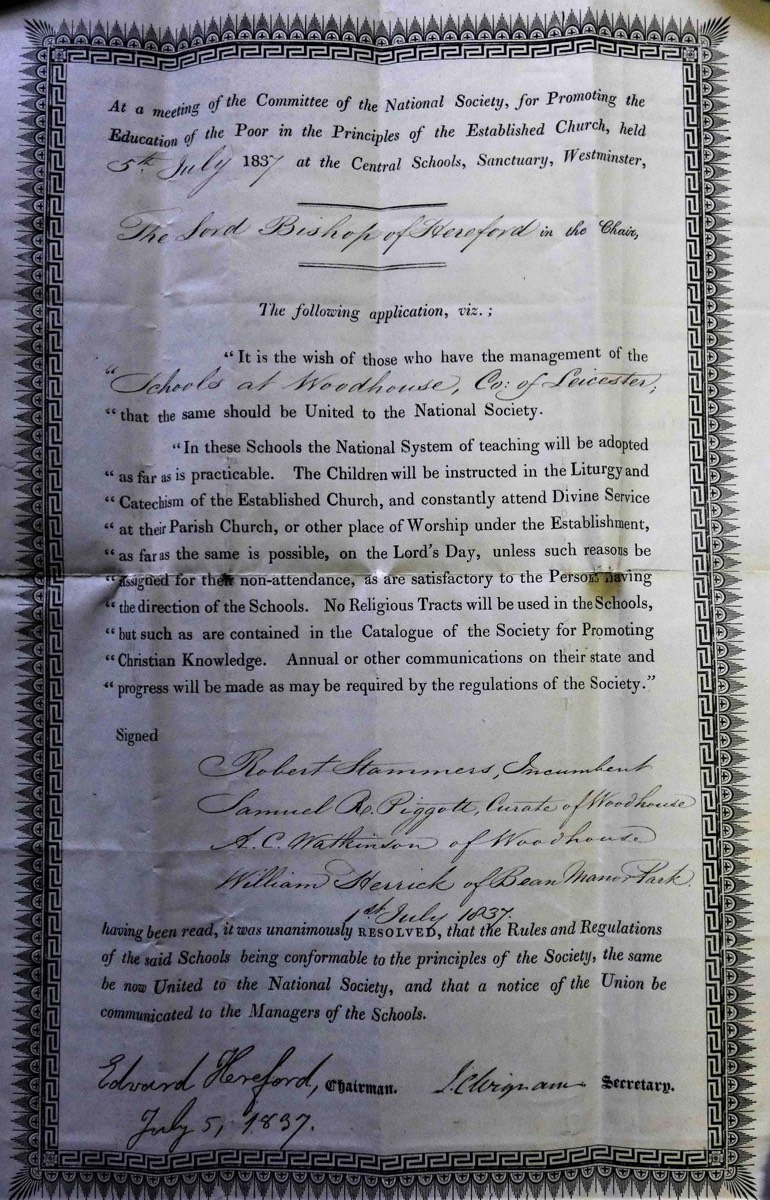 At a meeting of the Committee of the National Society, for Promoting the
Education of the Poor in the Principles of the Established Church, held
5th July 1837 at the Central Schools, Sanctuary, Westminster,
The Lord Bishop of Hereford in the Chair,
The following application, viz. ;
“ It is the wish of those who have the management of the
“ Schools at Woodhouse, Co: of Leicester,
“ that the same should be United to the National Society.
“ In these Schools the National System of teaching will be adopted
“ as far as is practicable. The Children will be instructed in the Liturgy and
“ Catechism of the Established Church, and constantly attend Divine Service
“ at their Parish Church, or other place of Worship under the Establishment,
“ as far as the same is possible, on the Lord's Day, unless such reasons be
“ assigned for their non-attendance, as are satisfactory to the Persons having
“ the direction of the Schools. No Religious Tracts will be used in the Schools,
“ but such as are contained in the Catalogue of the Society for Promoting
“ Christian Knowledge. Annual or other communications on their state and
“ progress will be made as may be required by the regulations of the Society.”
Signed
Robert Stammers, Incumbent
Samuel R. Piggott, Curate of Woodhouse
A. C. Watkinson of Woodhouse
William Herrick of Beau Manor Park
1st July 1837.
having been read, it was unanimously RESOLVED, that the Rules and Regulations
of the said Schools being conformable to the principles of the Society, the same
be now United to the National Society, and that a notice of the Union be
communicated to the Managers of the Schools.
Edward Hereford, Chairman. J. C. Wigram Secretary.
July 5, 1837.